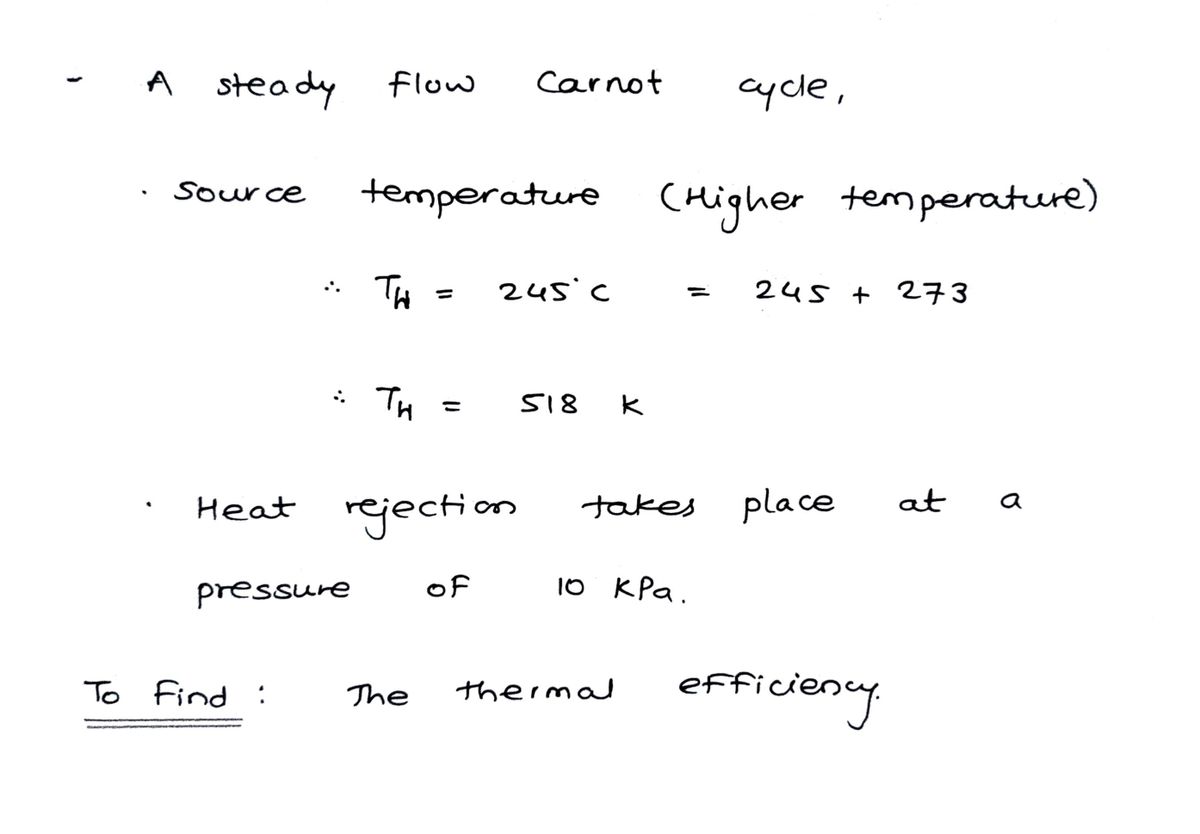 - A steady flow Carnot cycle,
· Source temperature (Higher temperature)
∴ TH = 245°C = 245 + 273
∴ TH = 518 K
· Heat rejection takes place at a
pressure of 10 KPa.
To Find : The thermal efficiency.